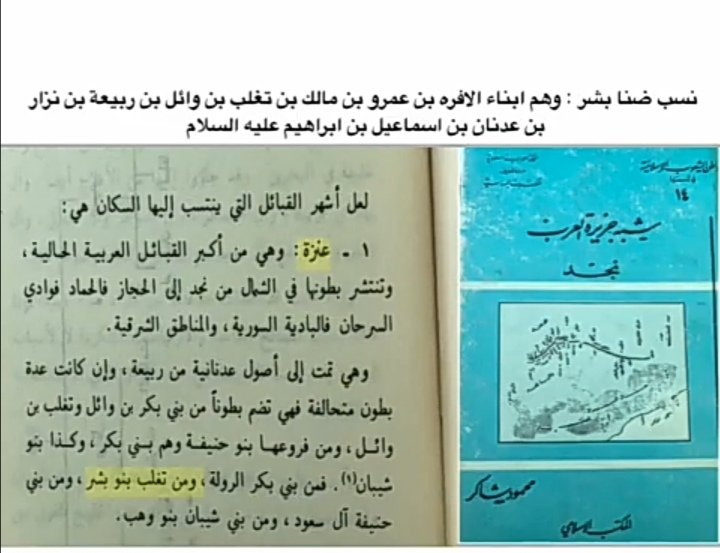 نسب ضنا بشر : وهم ابناء الافره بن عمرو بن مالك بن تغلب بن وائل بن ربيعة بن نزار
بن عدنان بن اسماعيل بن ابراهيم عليه السلام
لعل أشهر القبائل التي ينتسب إليها السكان هي :
١ ـ عنزة : وهي من أكبر القبائل العربية الحالية ،
وتنتشر بطونها في الشمال من نجد إلى الحجاز فالحماد فوادي
السرحان فالبادية السورية ، والمناطق الشرقية .
وهي تمت إلى أصول عدنانية من ربيعة ، وإن كانت عدة
بطون متحالفة فهي تضم بطوناً من بني بكر بن وائل وتغلب بن
وائل ، ومن فروعها بنو حنيفة وهم بني بكر ، وكذا بنو
شيبان(١) . فمن بني بكر الرولة ، ومن تغلب بنو بشر ، ومن بني
حنيفة آل سعود ، ومن بني شيبان بنو وهب .
١٤
شبه جزيرة العرب
نجد
محمود شاكر
المكتب الإسلامي